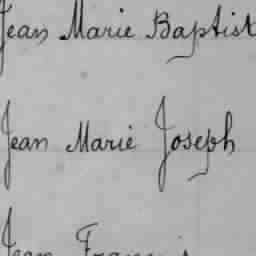 Jean Marie Baptist
Jean Marie Joseph
Jean